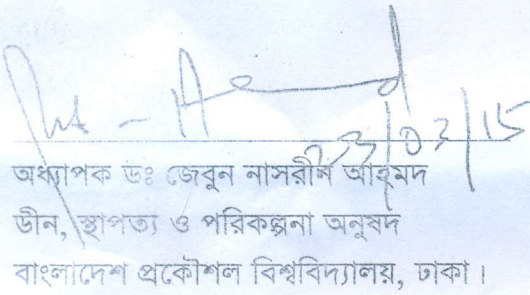 23/02/15
অধ্যাপক ডঃ জেবুন নাসরীন আহমদ
ডীন, স্থাপত্য ও পরিকল্পনা অনুষদ
বাংলাদেশ প্রকৌশল বিশ্ববিদ্যালয়, ঢাকা।